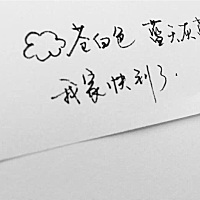 苍白色 蓝天灰
我家快到了.